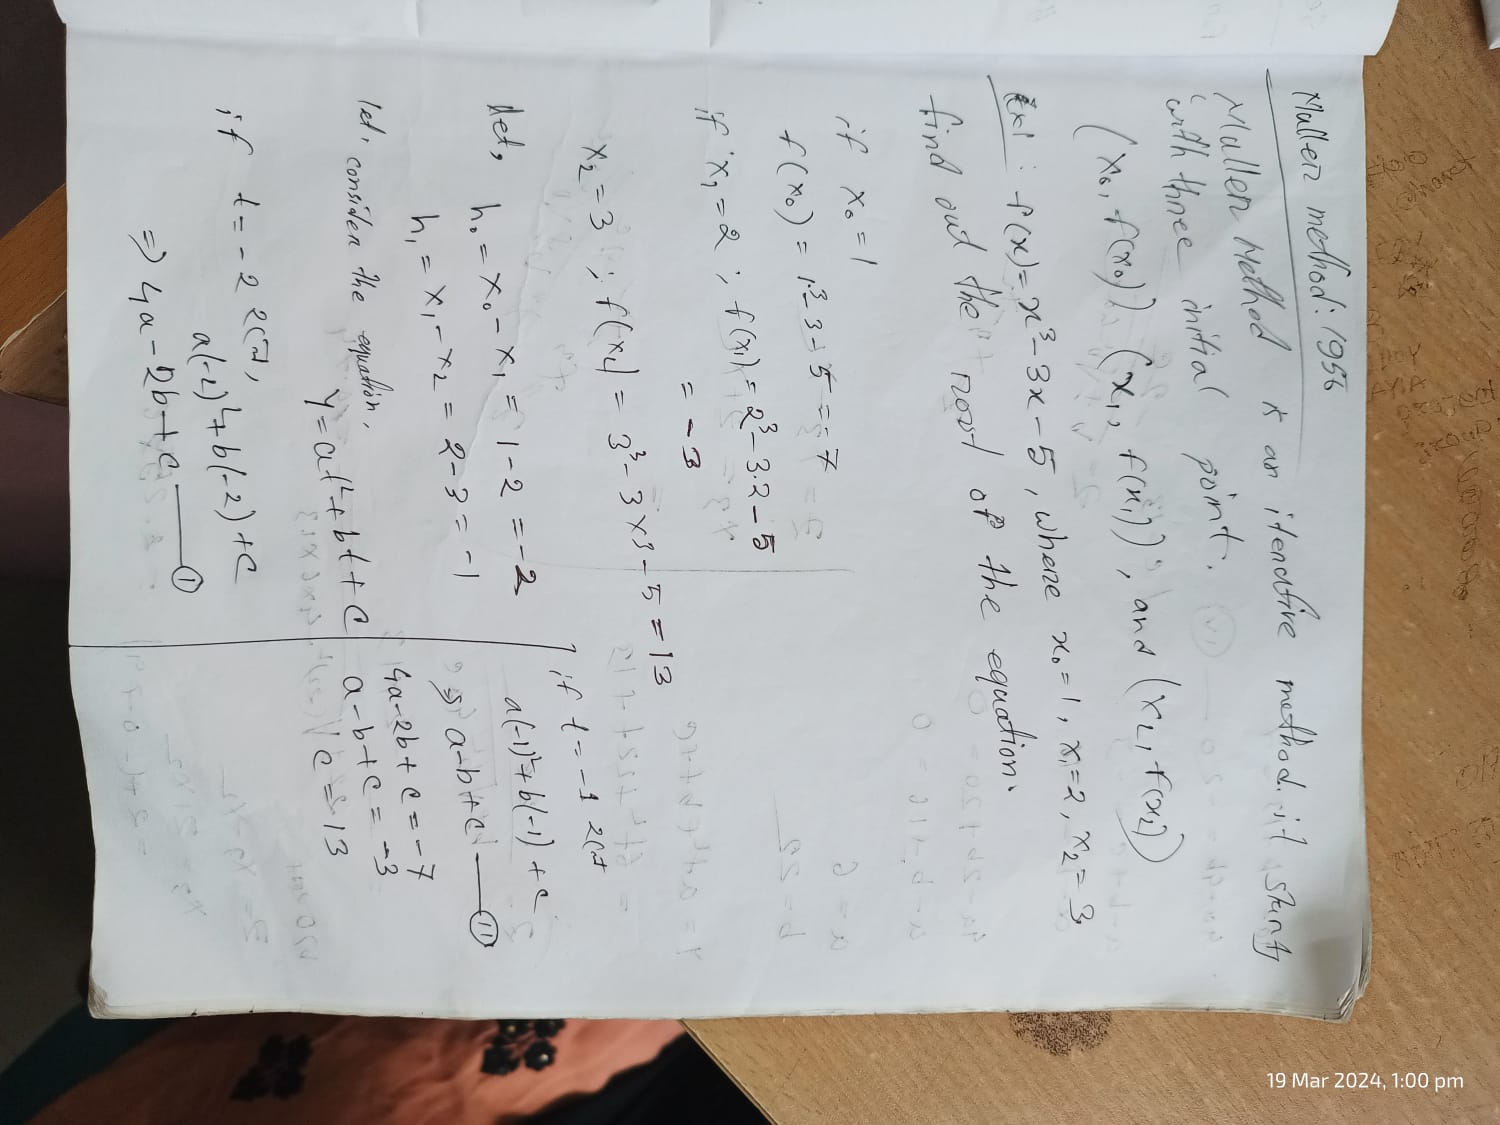 Muller method: 1956
Muller Method is an iterative method. it start
with three initial point.
(x₀, f(x₀)) (x₁, f(x₁)), and (x₂, f(x₂))
Ex1: f(x) = x³ - 3x - 5, where x₀ = 1, x₁ = 2, x₂ = 3,
find out the root of the equation.
if x₀ = 1
f(x₀) = 1³ - 3 - 5 = -7
if x₁ = 2 ; f(x₁) = 2³ - 3.2 - 5
= -3
x₂ = 3 ; f(x₂) = 3³ - 3x3 - 5 = 13
Let, h₀ = x₀ - x₁ = 1 - 2 = -2
h₁ = x₁ - x₂ = 2 - 3 = -1
let, consider the equation,
y = at² + bt + c
if t = -2 হলে,
a(-2)² + b(-2) + c
⇒ 4a - 2b + c ——— ①
if t = -1 হলে
a(-1)² + b(-1) + c
⇒ a - b + c ——— ⑪
4a - 2b + c = -7
a - b + c = -3
c = 13
19 Mar 2024, 1:00 pm